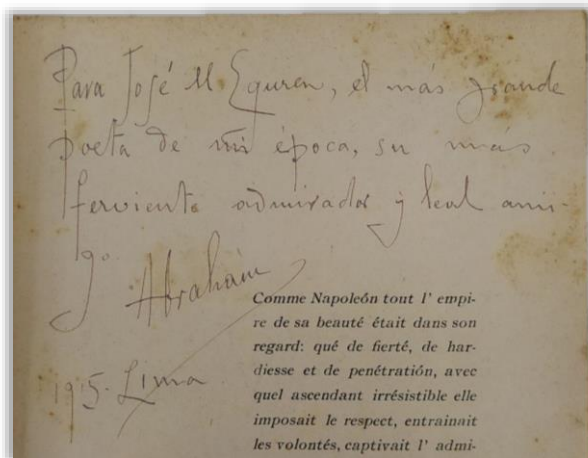 Para José M Eguren, el más grande
poeta de mi época, su más
ferviente admirador y leal ami-
go.
Abraham
1915. Lima
Comme Napoleón tout l' empi-
re de sa beauté était dans son
regard: qué de fierté, de har-
diesse et de penétration, avec
quel ascendant irrésistible elle
imposait le respect, entrainait
les volontés, captivait l' admi-